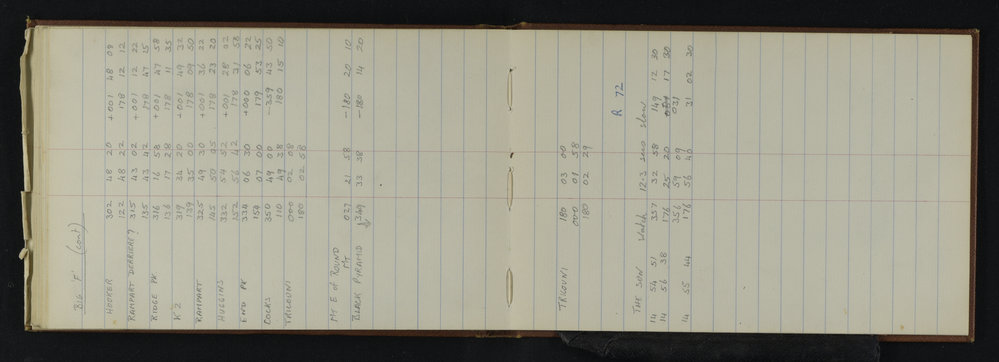 BIG 'P' (cont)
HOOKER 302 48 20 +001 48 09
122 48 22 178 12 12
RAMPART DERRIERE? 315 43 02 +001 12 22
135 43 42 178 47 15
RIDGE PK 316 16 58 +001 47 58
136 17 28 178 11 35
K2 319 34 20 +001 49 32
139 35 00 178 09 50
RAMPART 325 49 30 +001 36 22
145 50 05 178 23 20
HUGGINS 332 54 52 +001 28 02
152 56 42 178 31 58
END PK 334 06 30 +000 06 22
154 07 00 179 53 25
COCKS 350 49 00 -359 43 50
110 49 38 180 15 10
TRICOUNI 000 02 08
180 02 58
MT E OF ROUND
MT 027 21 58 -180 20 10
BLACK PYRAMID 349 33 38 -180 14 20
TRICOUNI 180 03 00
000 01 58
180 02 29
R 72
THE SUN Watch 12.3 secs slow
14 54 51 357 32 58 149 12 30
14 56 38 176 25 20 17 30
356 59 09 031
14 55 44 176 56 40 31 02 30